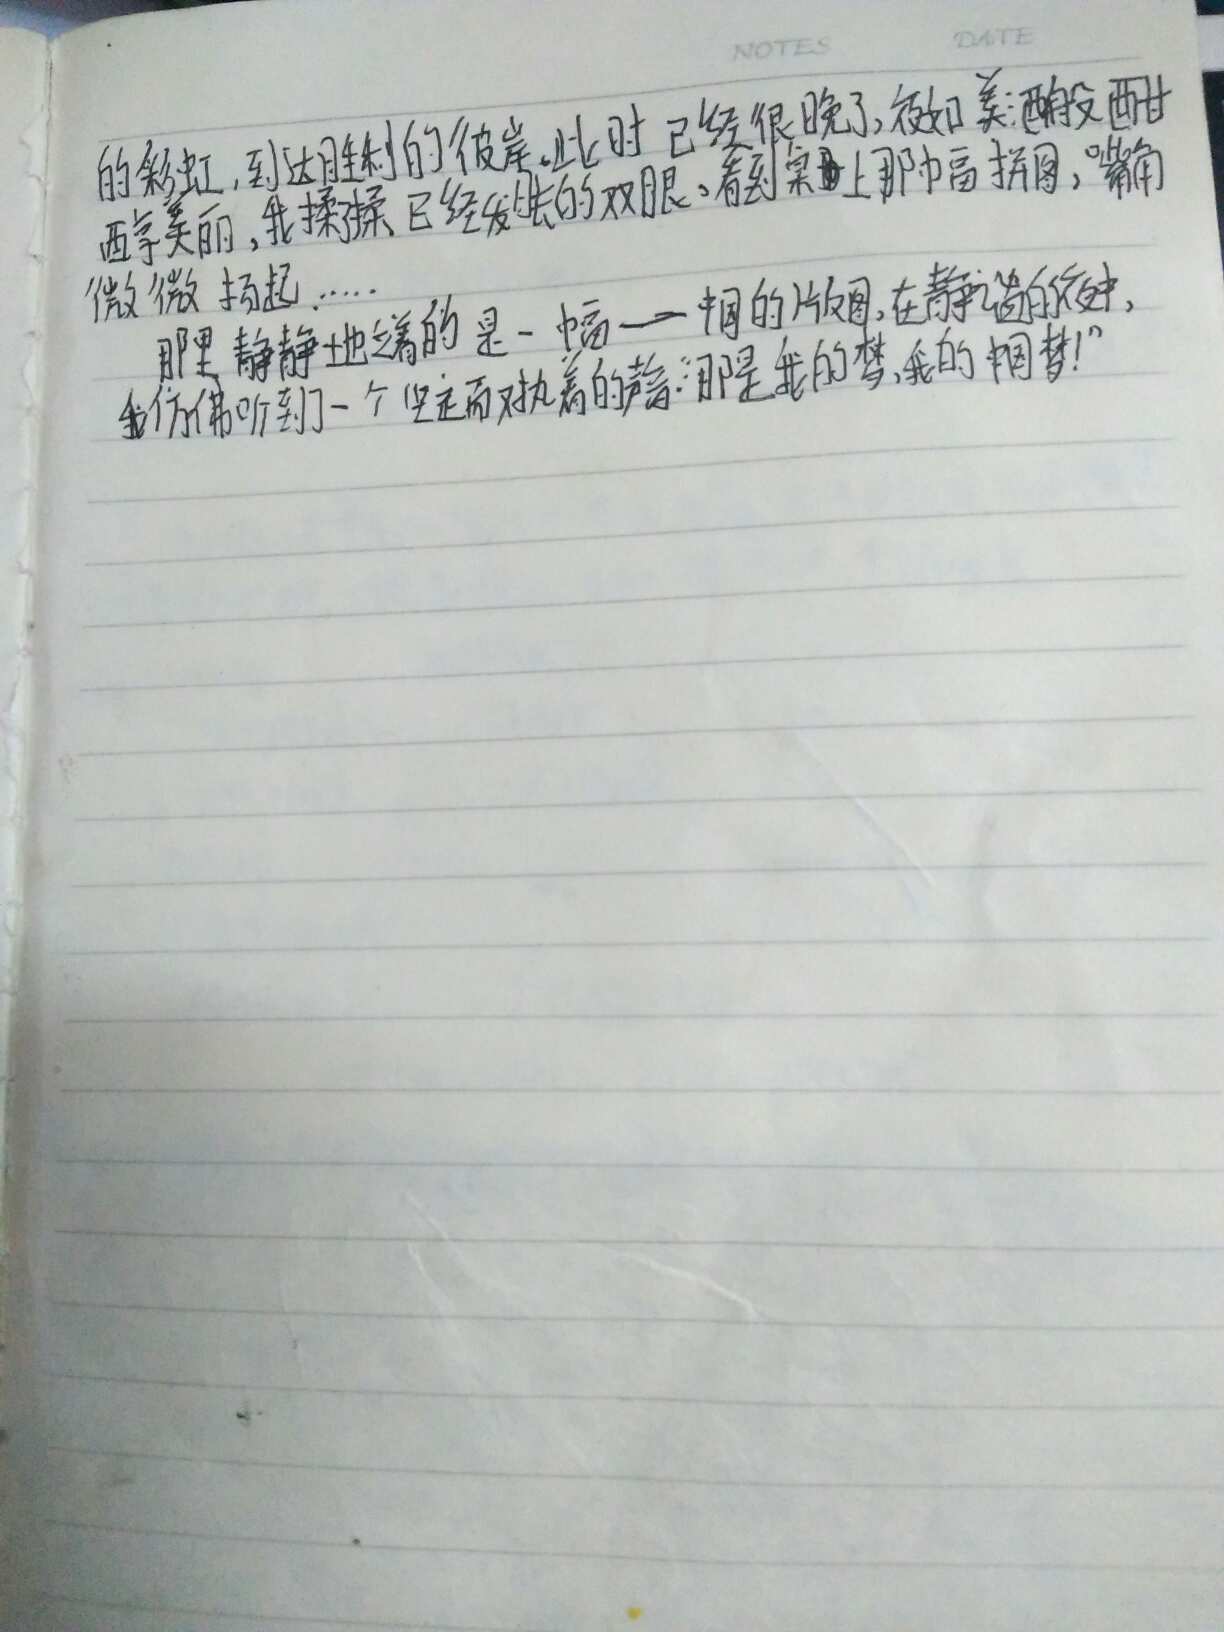 NOTES DATE
的彩虹,到达胜利的彼岸。此时已经很晚了,夜如美酒般酣
醇美丽,我揉揉已经发胀的双眼,看到桌上那幅拼图,嘴角
微微扬起……
那里静静地立着的是一幅——中国的版图,在静谧的夜中,
我仿佛听到了一个坚定而执着的声音:“那是我的梦,我的中国梦!”